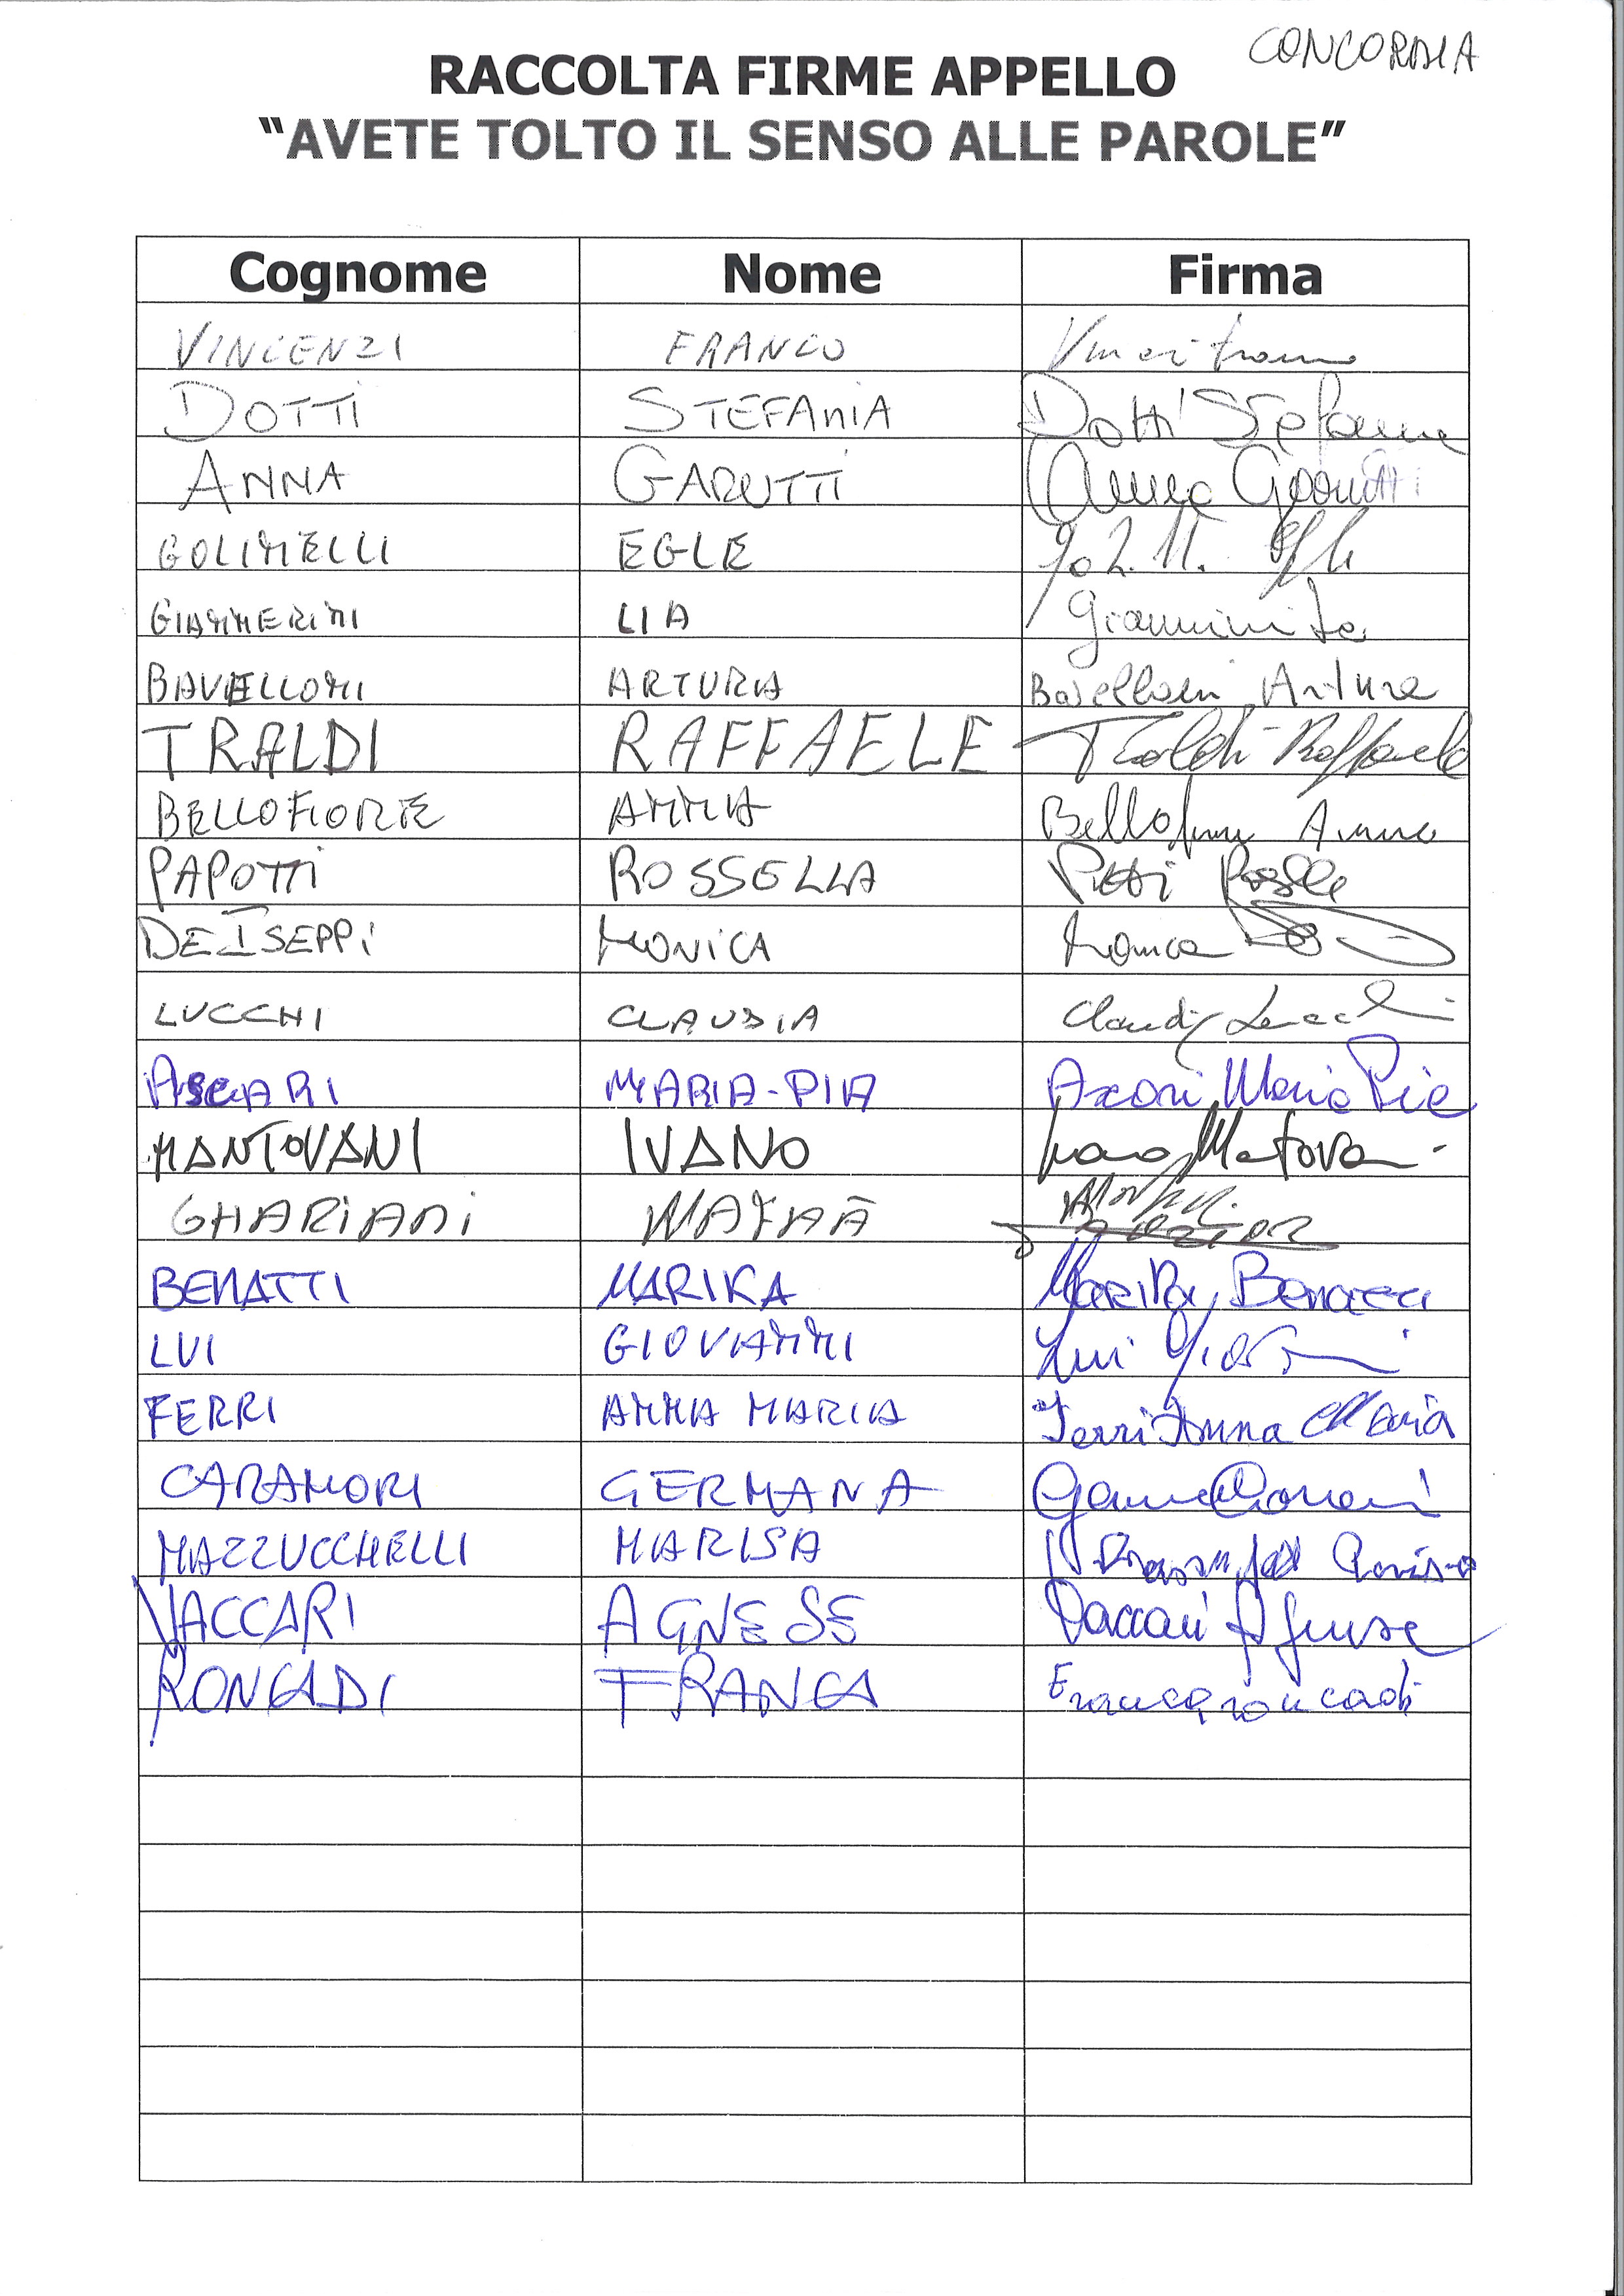 CONCORDIA
RACCOLTA FIRME APPELLO
“AVETE TOLTO IL SENSO ALLE PAROLE”
Cognome Nome Firma
VINCENZI FRANCO
DOTTI STEFANIA Dotti Stefania
ANNA GARUTTI Anna Garutti
GOLINELLI EGLE
GIANNERINI LIA
BAVELLONI ARTURA Bavelloni Artura
TRALDI RAFFAELE Traldi Raffaele
BELLOFIORE ANNA Bellofiore Anna
PAPOTTI ROSSELLA
DEISEPPI MONICA Monica
LUCCHI CLAUDIA Claudia Lucchi
ASCARI MARIA-PIA Ascari Maria Pia
MANTOVANI IVANO Ivano Mantovani
GHARIANI
BENATTI MARIKA Marika Benatti
LUI GIOVANNI Lui Giovanni
FERRI ANNA MARIA Ferri Anna Maria
CARAMORI GERMANA
MAZZUCCHELLI MARISA
VACCARI AGNESE Vaccari Agnese
RONCADI FRANCA Franca roncadi